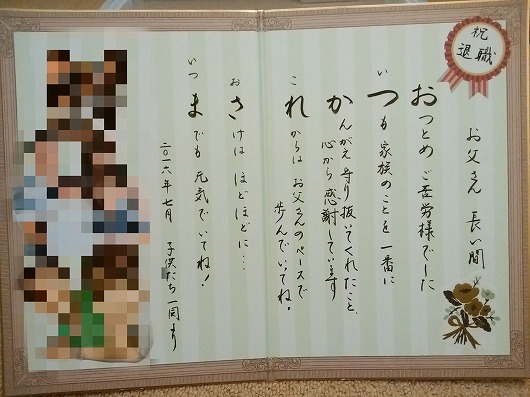 祝
退職
お父さん 長い間
おつとめご苦労様でした
いつも家族のことを一番に
かんがえ守り抜いてくれたこと、
心から感謝しています
これからは お父さんのペースで
歩んでいてね。
おさけは ほどほどに…
いつまでも 元気でいてね!
二〇一六年七月 子供たち一同より